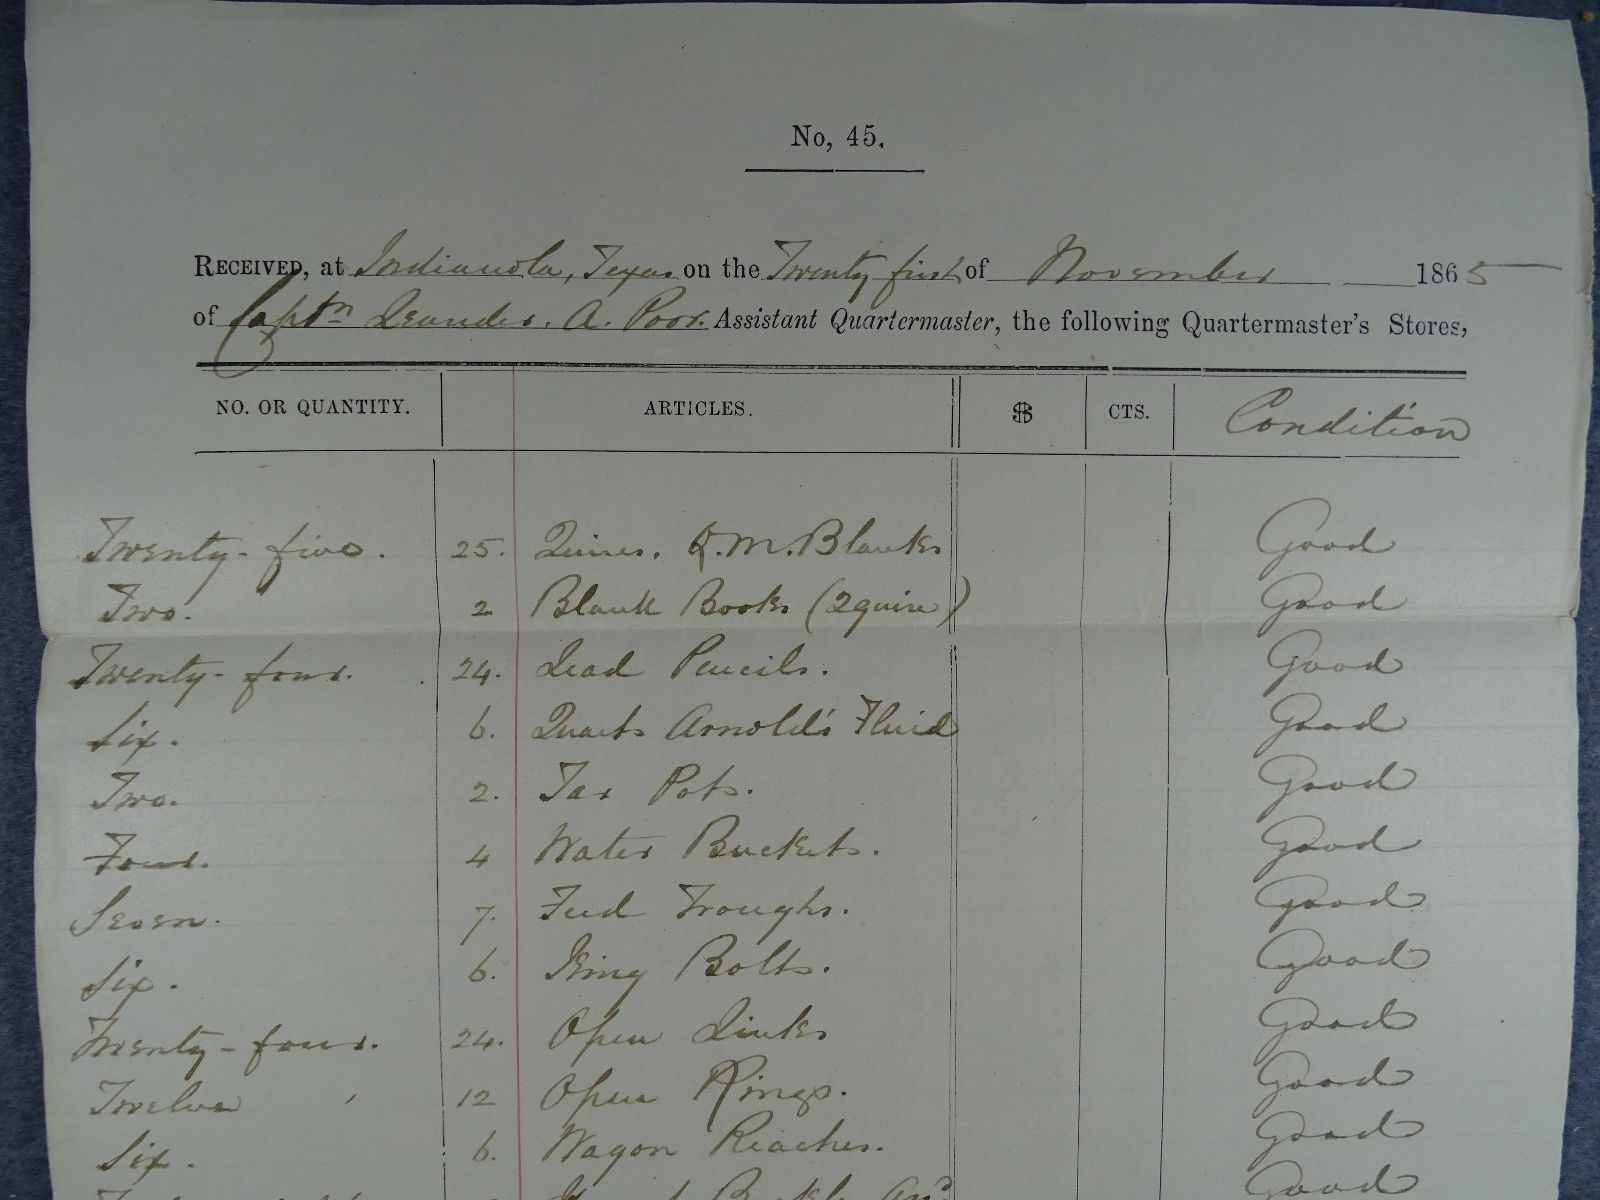 No, 45.
RECEIVED, at Indianola, Texas on the Twenty first of November 1865
of Captn Leander. A. Poor. Assistant Quartermaster, the following Quartermaster's Stores,
NO. OR QUANTITY. ARTICLES. $ CTS. Condition
Twenty-five. 25. Quires. Q.M. Blanks Good
Two. 2 Blank Books (2 quire) Good
Twenty-four. 24. Lead Pencils. Good
Six. 6. Quarts Arnold's Fluid Good
Two. 2. Tar Pots. Good
Four. 4 Water Buckets. Good
Seven. 7. Feed Troughs. Good
Six. 6. King Bolts. Good
Twenty-four. 24. Open Links Good
Twelve 12 Open Rings. Good
Six. 6. Wagon Reaches. Good
Good